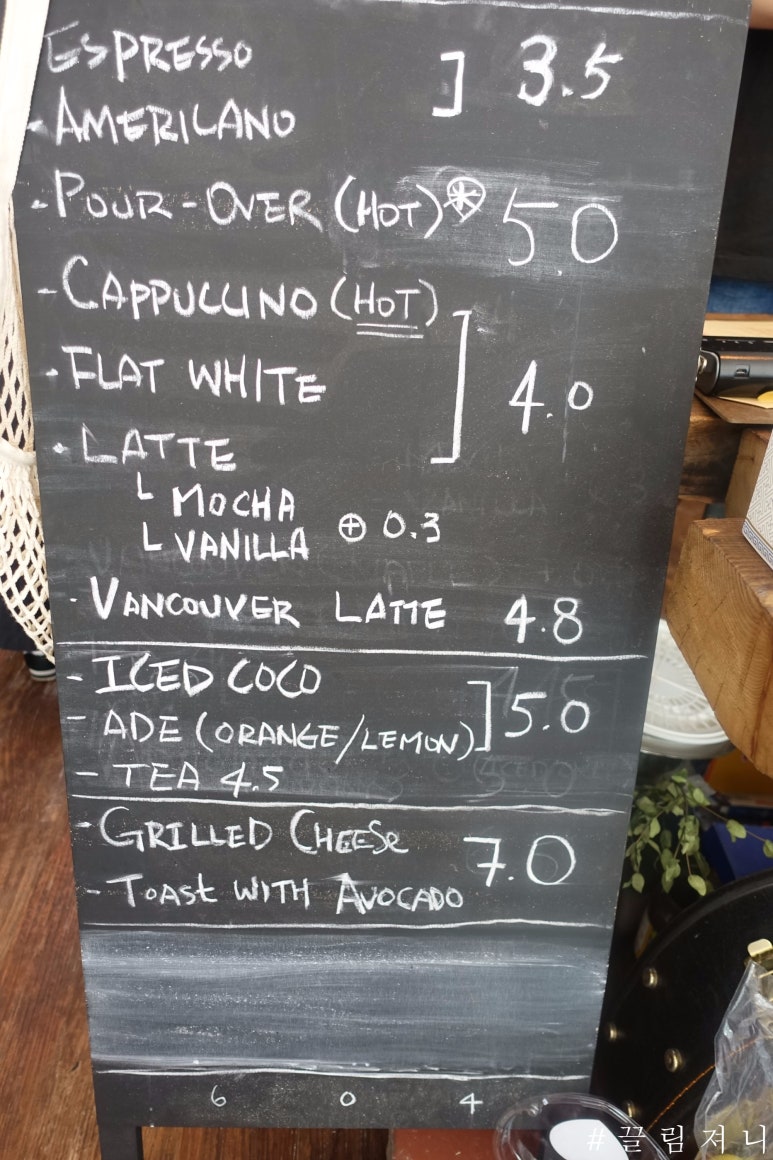 ESPRESSO ] 3.5
- AMERICANO
- POUR-OVER (HOT) * 5.0
- CAPPUCCINO (HOT)
- FLAT WHITE ] 4.0
- LATTE
└ MOCHA
└ VANILLA ⊕ 0.3
- VANCOUVER LATTE 4.8
- ICED COCO
- ADE (ORANGE/LEMON) ] 5.0
- TEA 4.5
- GRILLED CHEESE 7.0
- TOAST WITH AVOCADO
6 0 4
#끌림저니